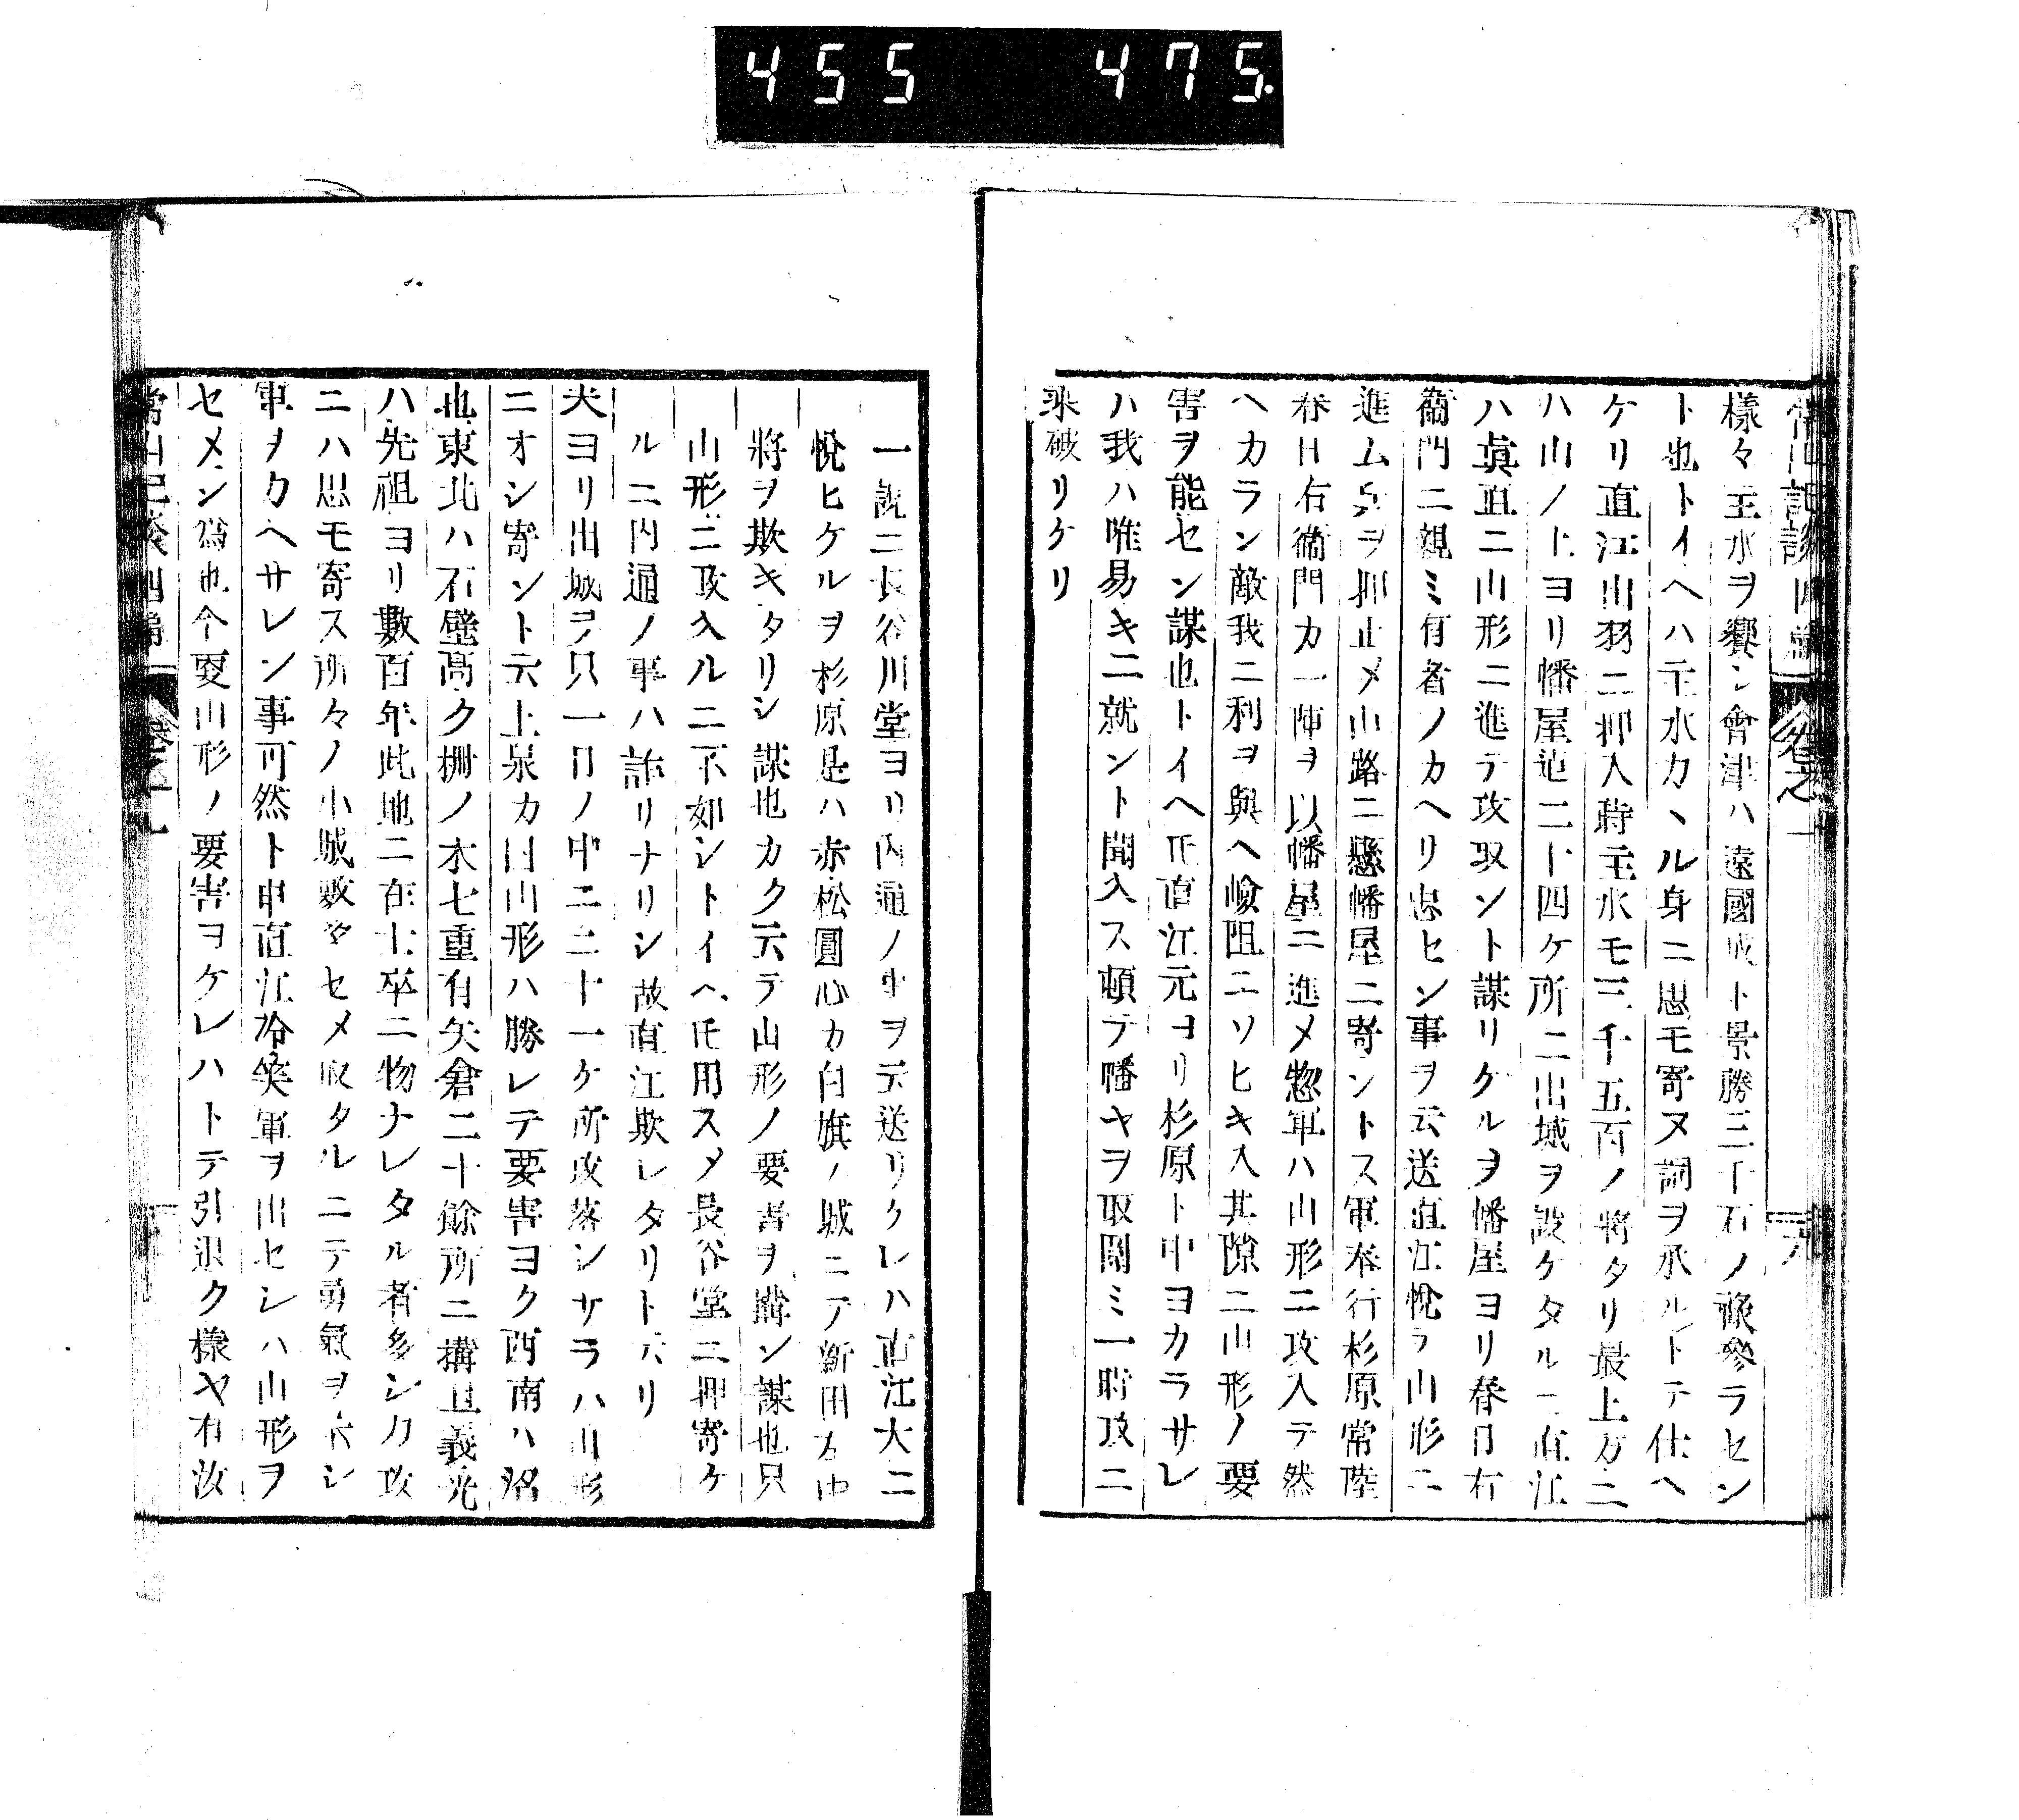 455 475.
樣々主水ヲ饗ン會津ハ遠國故ト景勝三千石ノ祿參ラセン
ト也トイヘハ主水カヽル身ニ思モ寄ヌ詞ヲ承ルトテ仕ヘ
ケリ直江出羽ニ押入蒔主水モ三千五百ノ將タリ最上方ニ
ハ山ノ上ヨリ幡屋迠二十四ケ所ニ出城ヲ設ケタルニ直江
ハ眞直ニ山形ニ進テ攻取ント謀リケルヲ幡屋ヨリ春日右
衞門ニ親ミ有者ノカヘリ忠セン事ヲ云送直江悅テ山形ニ
進ム兵ヲ押止メ山路ニ懸幡屋ニ寄ントス軍奉行杉原常陸
春日右衞門カ一陣ヲ以幡屋ニ進メ惣軍ハ山形ニ攻入テ然
ヘカラン敵我ニ利ヲ與ヘ嶮阻ニソヒキ入其隙ニ山形ノ要
害ヲ能セン謀也トイヘ𪜈直江元ヨリ杉原ト中ヨカラサレ
ハ我ハ唯易キニ就ント聞入ス頓テ幡ヤヲ取圍ミ一時攻ニ
乘破リケリ
一説ニ長谷川堂ヨリ内通ノ事ヲ云送リケレハ直江大ニ
悅ヒケルヲ杉原是ハ赤松圓心カ白旗ノ城ニテ新田左中
將ヲ欺キタリシ謀也カク云テ山形ノ要害ヲ構ン謀也只
山形ニ攻入ルニ不如ントイヘ𪜈用スメ長谷堂ニ押寄ケ
ルニ内通ノ事ハ詐リナリシ故直江欺レタリト云リ
夫ヨリ出城ヲ只一日ノ中ニ二十一ケ所攻落シサラハ山形
ニオシ寄ント云上泉カ曰山形ハ勝レテ要害ヨク西南ハ沼
也東北ハ石壁高ク柵ノ木七重有矢倉二十餘所ニ構且義光
ハ先祖ヨリ數百年此地ニ在士卒ニ物ナレタル者多シ力攻
ニハ思モ寄ス所々ノ小城數多セメ取タルニテ勇氣ヲ示シ
軍ヲカヘサレン事可然ト申直江冷笑軍ヲ出セシハ山形ヲ
セメン爲也今更山形ノ要害ヲケレハトテ引退ク樣ヤ有汝